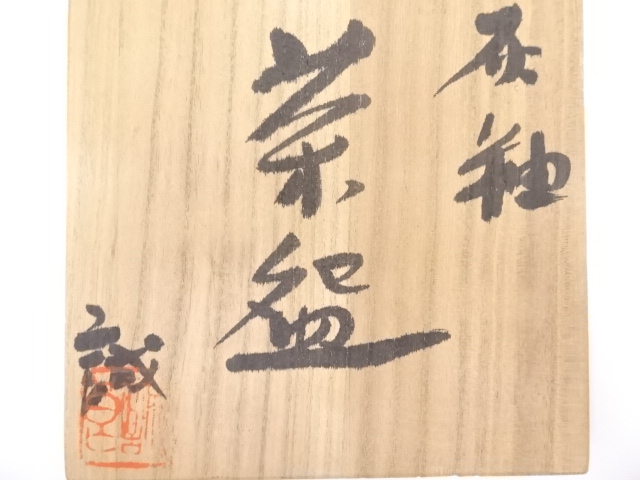 灰釉
茶盌
誠